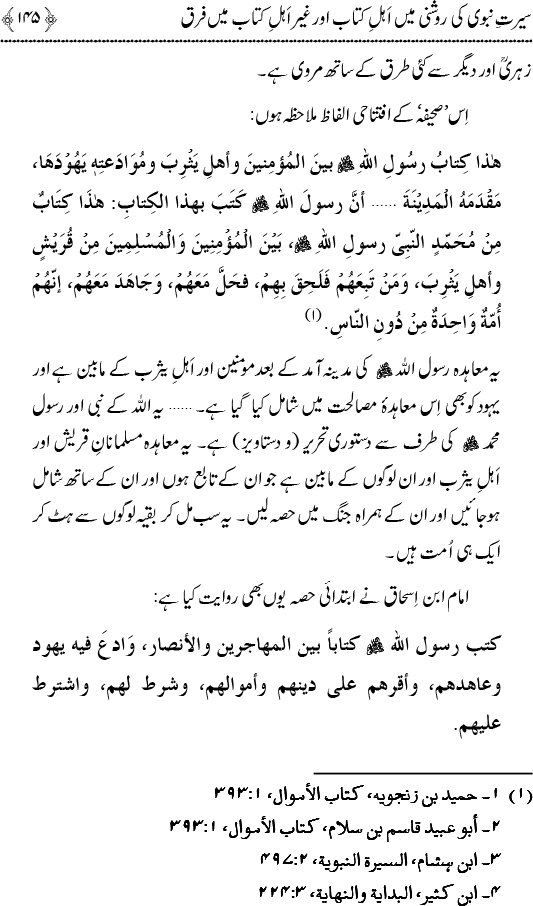 سیرتِ نبوی کی روشنی میں اَہلِ کتاب اور غیر اَہلِ کتاب میں فرق ﴿۱۴۵﴾
زہریؒ اور دیگر سے کئی طرق کے ساتھ مروی ہے۔
اِس ’صحیفہ‘ کے افتتاحی الفاظ ملاحظہ ہوں:
هٰذا كِتابُ رسُولِ اللهِ ﷺ بينَ المُؤمِنينَ وأهلِ يَثْرِبَ ومُوَادَعتِهِ يَهُوْدَهَا،
مَقْدَمَهُ الْمَدِيْنَةَ ...... أنَّ رسولَ اللهِ ﷺ كَتَبَ بهذا الكِتابِ: هٰذَا كِتَابٌ
مِنْ مُحَمَّدٍ النَّبِيِّ رسولِ اللهِ ﷺ، بَيْنَ الْمُؤْمِنِيْنَ وَالْمُسْلِمِيْنَ مِنْ قُرَيْشٍ
وأهلِ يَثْرِبَ، وَمَنْ تَبِعَهُمْ فَلَحِقَ بِهِمْ، فحَلَّ مَعَهُمْ، وَجَاهَدَ مَعَهُمْ، إنّهُمْ
أُمَّةٌ وَاحِدَةٌ مِنْ دُونِ النَّاسِ.(۱)
یہ معاہدہ رسول اللہ ﷺ کی مدینہ آمد کے بعد مومنین اور اَہلِ یثرب کے مابین ہے اور
یہود کو بھی اِس معاہدۂ مصالحت میں شامل کیا گیا ہے۔ ...... یہ اللہ کے نبی اور رسول
محمد ﷺ کی طرف سے دستوری تحریر (و دستاویز) ہے۔ یہ معاہدہ مسلمانانِ قریش اور
اَہلِ یثرب اور ان لوگوں کے مابین ہے جو ان کے تابع ہوں اور ان کے ساتھ شامل
ہو جائیں اور ان کے ہمراہ جنگ میں حصہ لیں۔ یہ سب مل کر بقیہ لوگوں سے ہٹ کر
ایک ہی اُمت ہیں۔
امام ابن اِسحاق نے ابتدائی حصہ یوں بھی روایت کیا ہے:
كتب رسول الله ﷺ كتاباً بين المهاجرين والأنصار، وَادعَ فيه يهود
وعاهدهم، وأقرهم على دينهم وأموالهم، وشرط لهم، واشترط
عليهم.
(۱) ۱۔ حميد بن زنجويه، كتاب الأموال، ۱:۳۹۳
۲۔ أبو عبيد قاسم بن سلام، كتاب الأموال، ۱:۳۹۳
۳۔ ابن هشام، السيرة النبوية، ۲:۴۹۷
۴۔ ابن كثير، البداية والنهاية، ۳:۲۲۴